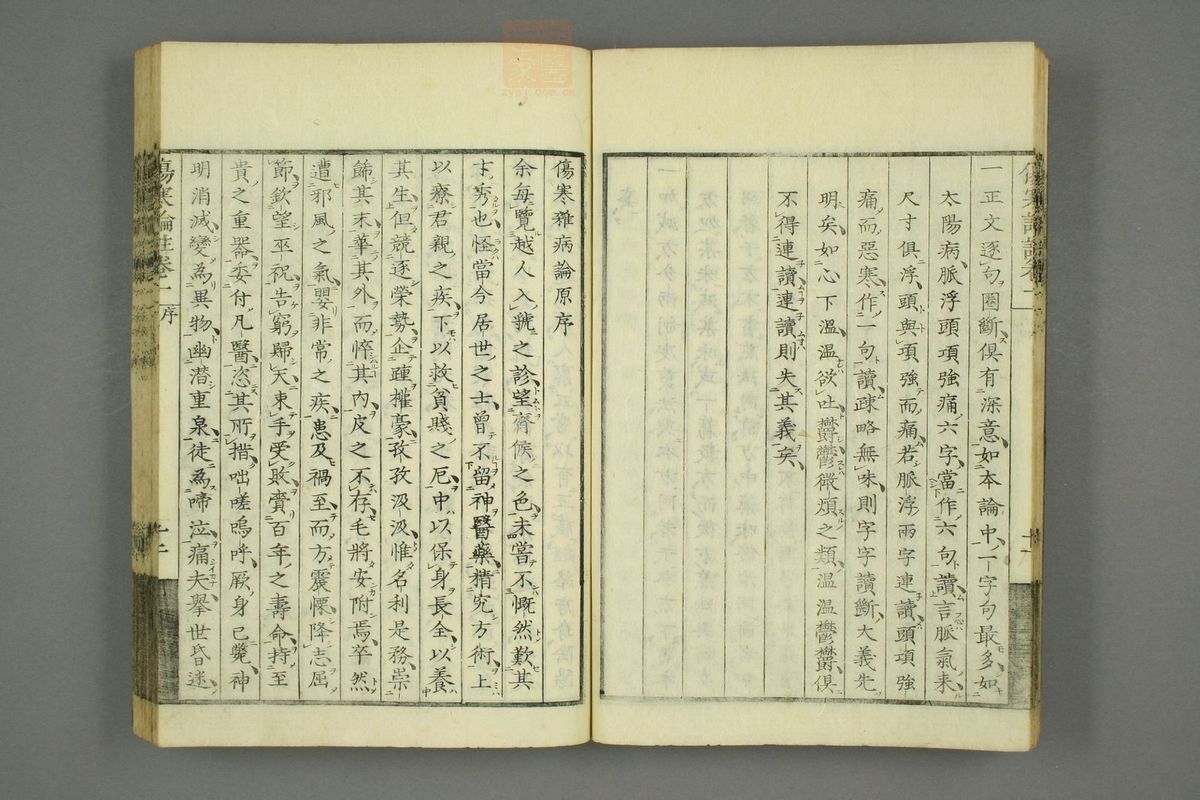 一正文逐句圈斷俱有深意如本論中一字句最多如
太陽病脈浮頭項強痛六字當作六句讀言脈氣來
尺寸俱浮頭與項強而痛若脈浮兩字連讀頭項強
痛而惡寒作一句讀疎略無味則字字讀斷大義先
明矣如心下溫溫欲吐鬱鬱微煩之類溫溫鬱鬱俱
不得連讀連讀則失其義矣
傷寒雜病論原序
余每覽越人入虢之診望齊候之色未嘗不慨然歎其
才秀也怪當今居世之士曾不留神醫藥精究方術上
以療君親之疾下以救貧賤之厄中以保身長全以養
其生但競逐榮勢企踵權豪孜孜汲汲惟名利是務崇
飾其末華其外而悴其內皮之不存毛將安附焉卒然
遭邪風之氣嬰非常之疾患及禍至而方震慄降志屈
節欽望巫祝告窮歸天束手受敗賷百年之壽命持至
貴之重器委付凡醫恣其所措咄嗟嗚呼厥身已斃神
明消滅變為異物幽潛重泉徒為啼泣痛夫舉世昏迷
傷寒論註卷一 序
zysj.com.cn